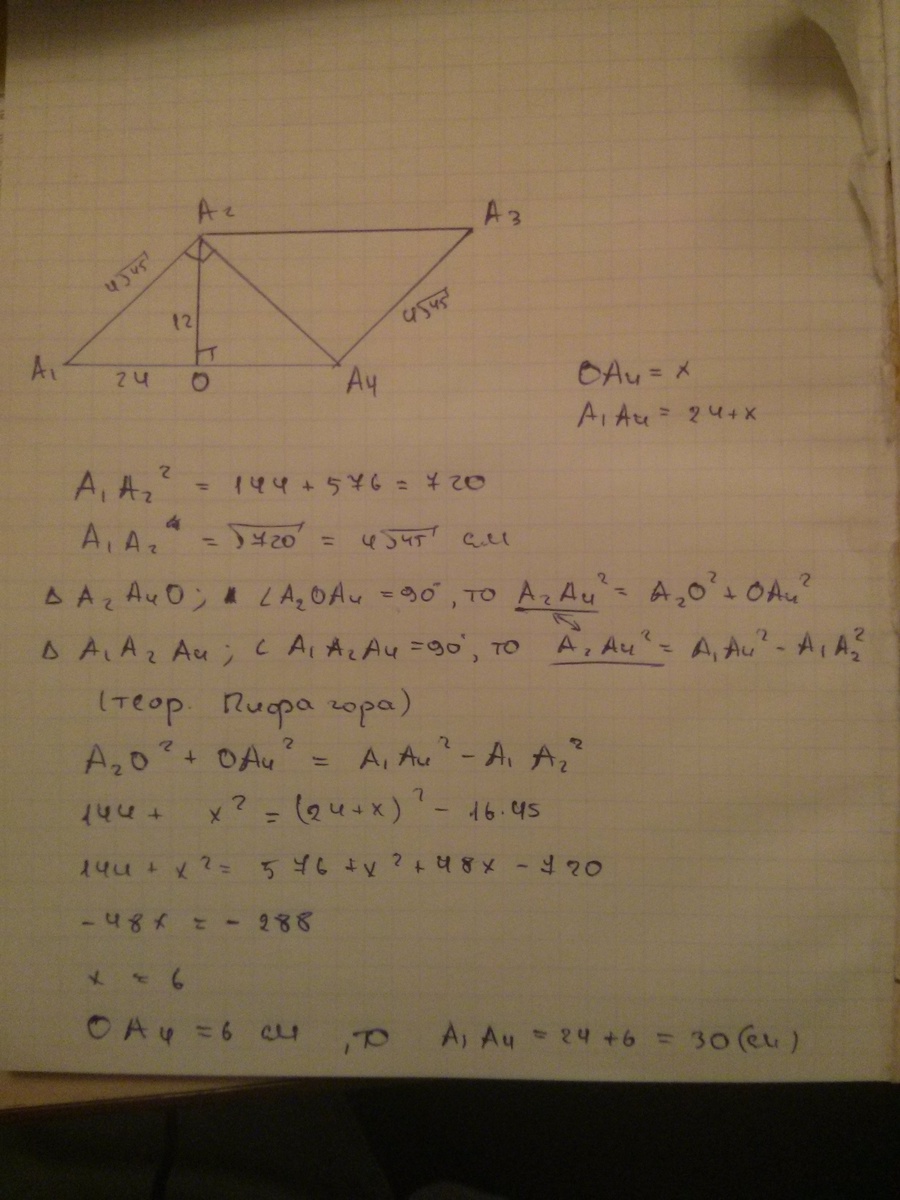 A₂ A₃
4√45 4√45
12
A₁ 24 O A₄
OA₄ = x
A₁A₄ = 24+x
A₁A₂² = 144 + 576 = 720
A₁A₂ = √720 = 4√45 см
Δ A₂A₄O; ∠A₂OA₄ = 90°, то A₂A₄² = A₂O² + OA₄²
Δ A₁A₂A₄; ∠A₁A₂A₄ = 90°, то A₂A₄² = A₁A₄² - A₁A₂²
(теор. Пифагора)
A₂O² + OA₄² = A₁A₄² - A₁A₂²
144 + x² = (24+x)² - 16·45
144 + x² = 576 + x² + 48x - 720
-48x = -288
x = 6
OA₄ = 6 см, то A₁A₄ = 24+6 = 30(см)